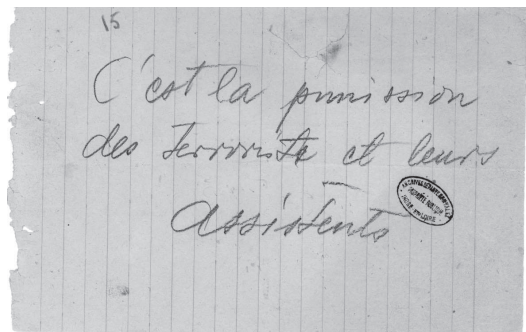 15
C'est la punission
des terroriste et leurs
assistents